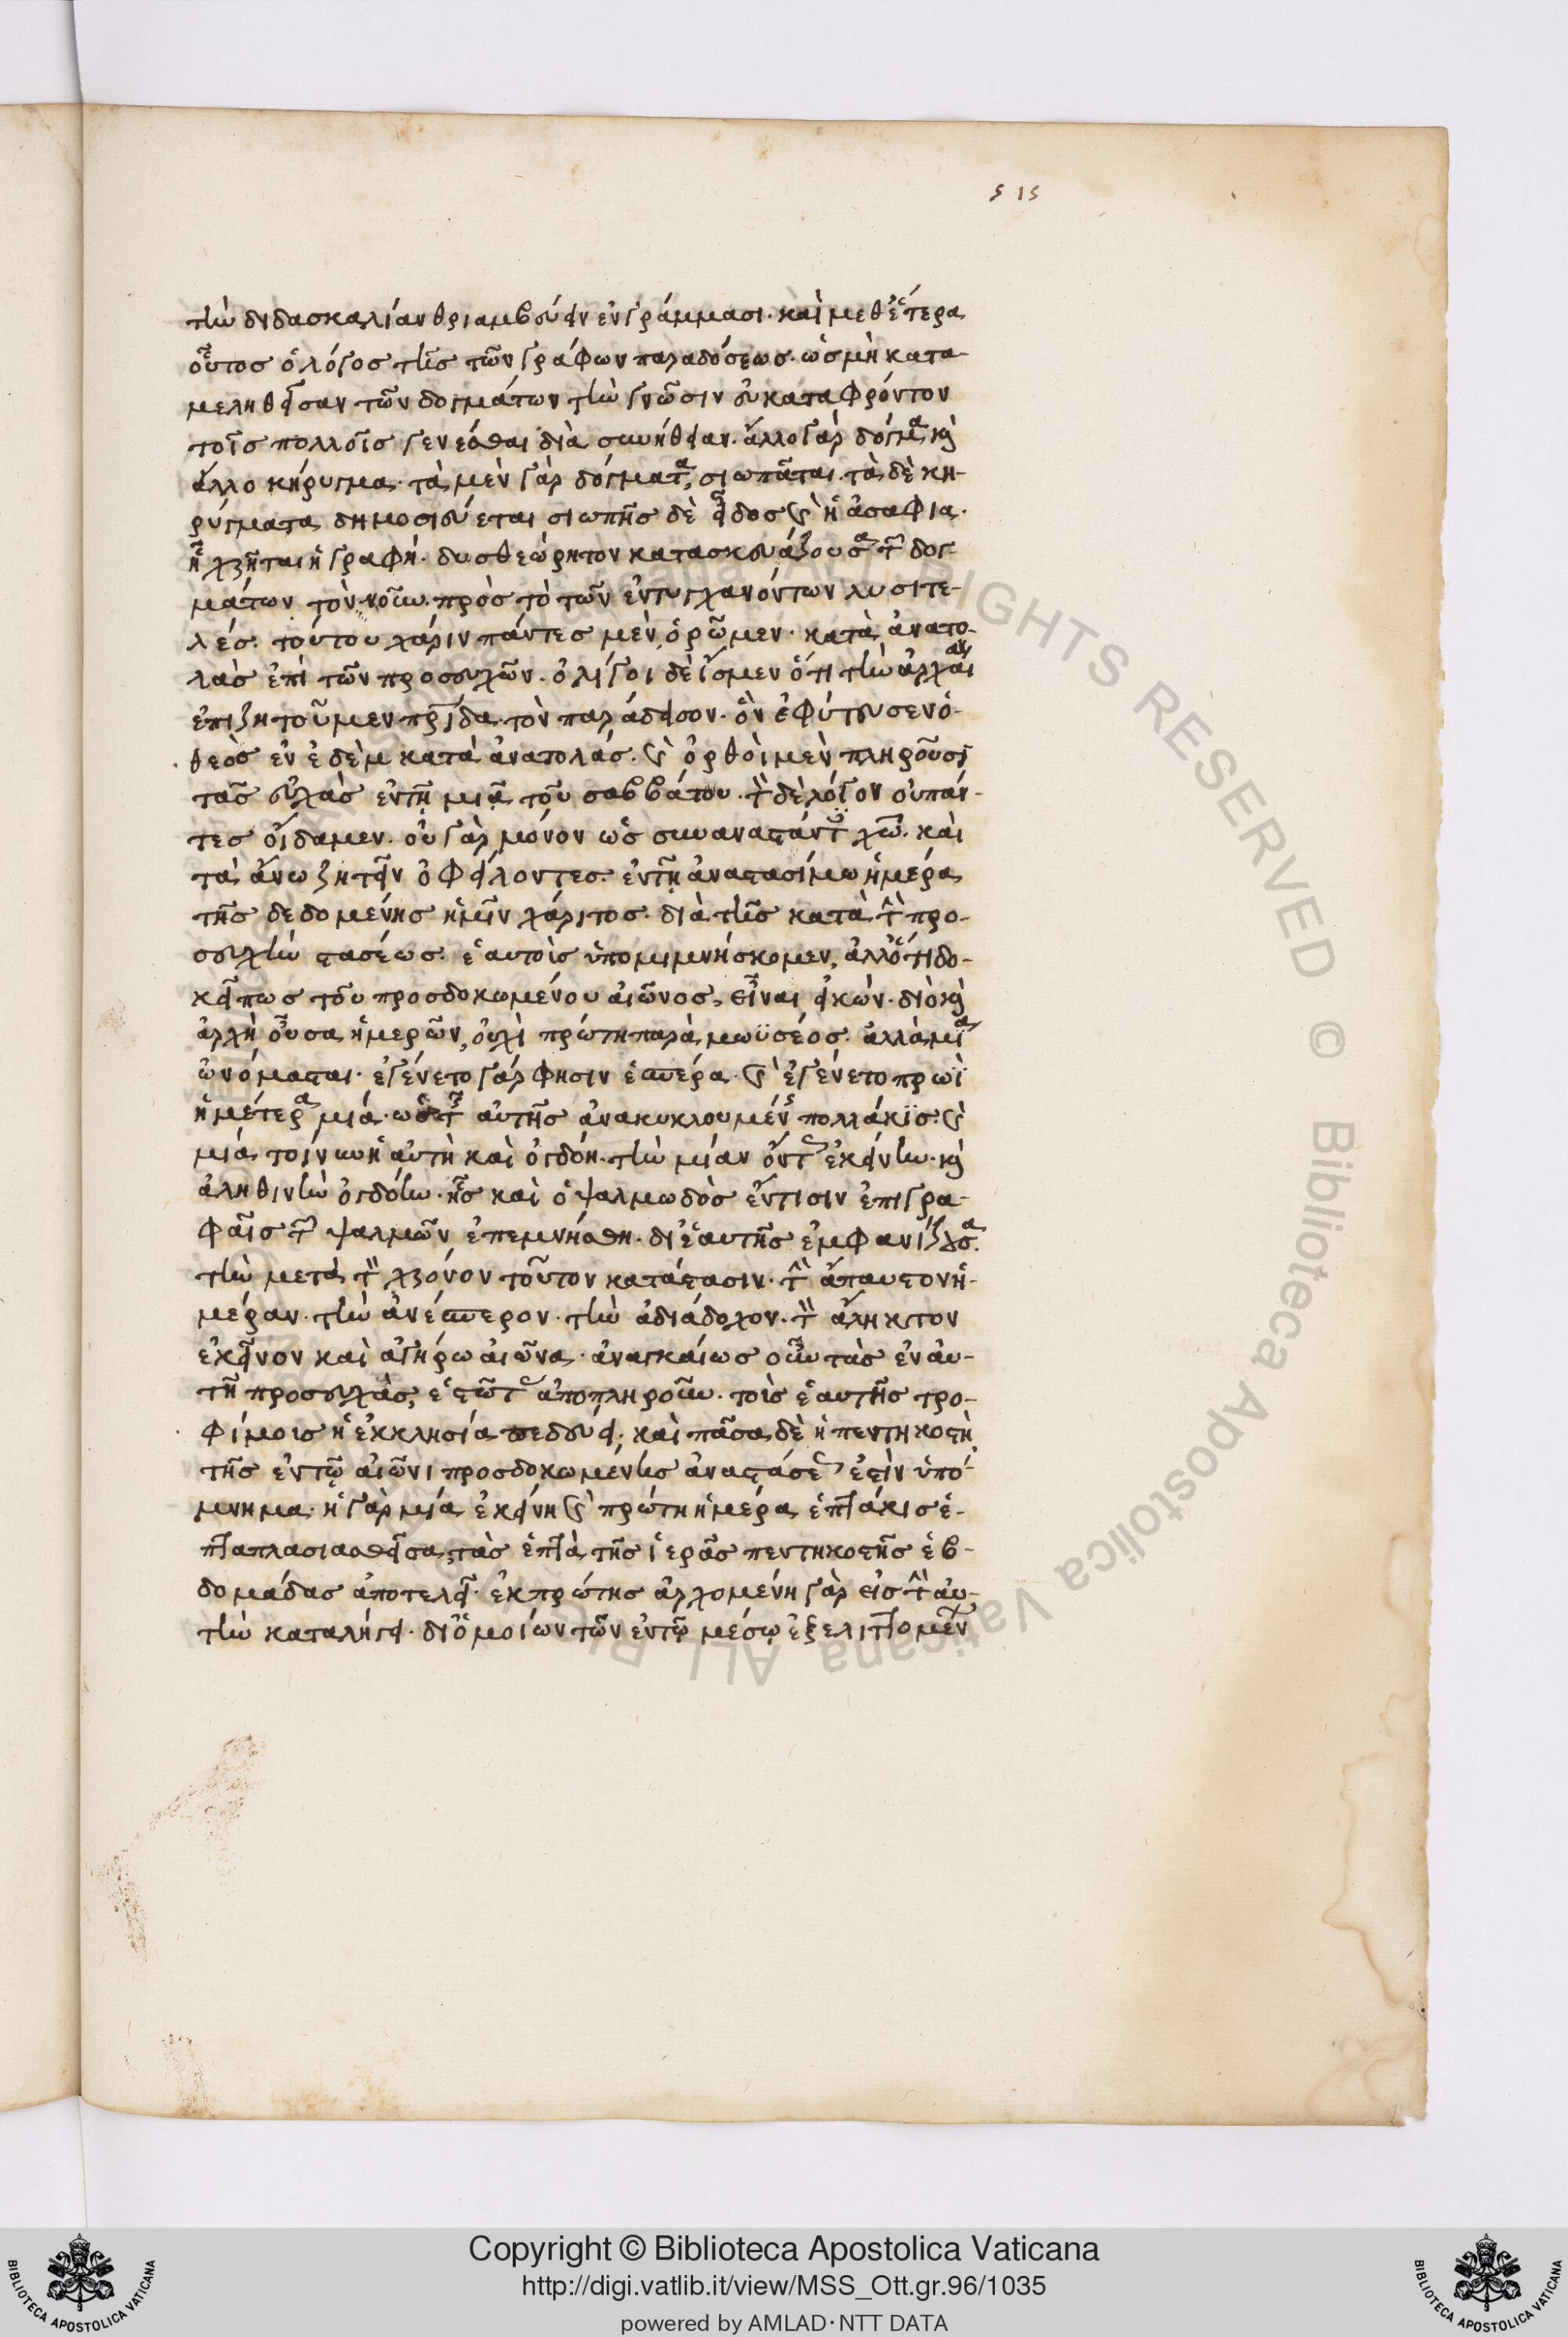 515
τὴν διδασκαλίαν θριαμβεύειν ἐν γράμμασι· καὶ μεθ' ἕτερα
οὗτος ὁ λόγος τῆς τῶν γράφων παραδόσεως· ὡς μὴ κατα-
μεληθεῖσαν τῶν δογμάτων τὴν γνῶσιν εὐκαταφρόντον
τοῖς πολλοῖς γενέσθαι διὰ συνήθειαν· ἄλλο γὰρ δόγμα καὶ
ἄλλο κήρυγμα· τὰ μὲν γὰρ δόγματα, σιωπᾶται· τὰ δὲ κη-
ρύγματα δημοσιεύεται σιωπῆς δὲ εἶδος καὶ ἡ ἀσαφια·
ἧ χρῆται ἡ γραφή· δυσθεώρητον κατασκευάζουσα τῶν δογ-
μάτων τὸν νοῦν· πρὸς τὸ τῶν ἐντυγχανόντων λυσιτε-
λές· τούτου χάριν πάντες μὲν ὁρῶμεν· κατὰ ἀνατο-
λὰς ἐπὶ τῶν προσευχῶν· ὀλίγοι δὲ ἴσμεν ὅτι τὴν ἀρχαίαν
ἐπιζητοῦμεν πρίδα· τὸν παράδεισον· ὃν ἐφύτευσεν ὁ
θεὸς ἐν ἐδὲμ κατὰ ἀνατολάς· καὶ ὀρθοὶ μὲν πληροῦσι
τὰς εὐχὰς ἐν τῇ μιᾷ τοῦ σαββάτου· τὸν δὲ λόγον οὐ πάν-
τες οἴδαμεν· οὐ γὰρ μόνον ὡς συναναστάντες χῶ· καὶ
τὰ ἄνω ζητεῖν ὀφείλοντες· ἐν τῇ ἀναστασίμω ἡμέρα
τῆς δεδομένης ἡμῖν χάριτος· διὰ τῆς κατὰ τὴν προ-
σευχὴν στασέως· ἑαυτοὶς ὑπομιμνήσκομεν, ἀλλ' ὅτι δο-
κεῖ πως τοῦ προσδοκωμένου αἰῶνος, εἶναι εἰκών· διὸ καὶ
ἀρχὴ οὖσα ἡμερῶν, οὐχὶ πρώτη παρὰ μωϋσέος· ἀλλὰ μία
ὠνόμασται· ἐγένετο γάρ φησιν ἑσπέρα· καὶ ἐγένετο πρωῒ
ἡμέτερα μιά· ὡς τῆς αὐτῆς ἀνακυκλουμένης πολλάκις· καὶ
μιά τοίνυν ἡ αὐτὴ καὶ ὀγδόη· τὴν μίαν ὄντως ἐκείνην· καὶ
ἀληθινὴν ὀγδόην· ἧς καὶ ὁ ψαλμωδὸς ἔν τισιν ἐπιγρα-
φαῖς τῶν ψαλμῶν ἐπεμνήσθη· δι' ἑαυτῆς ἐμφανίζουσα·
τὴν μετὰ τὸν χρόνον τοῦτον κατάστασιν· τὴν ἄπαυστον ἡ-
μέραν· τὴν ἀνέσπερον· τὴν ἀδιάδοχον· τὸν ἄληκτον
ἐκεῖνον καὶ ἀγήρω αἰῶνα· ἀναγκαίως οὖν τὰς ἐν αὐ-
τῆ προσευχὰς, ἑστῶτας ἀποπληροῦν· τοὶς ἑαυτῆς τρο-
φίμοις ἡ ἐκκλησία πεδεύει· καὶ πᾶσα δὲ ἡ πεντηκοστὴ
τῆς ἐν τῷ αἰῶνι προσδοκωμένης ἀναστάσεως ἐστὶν ὑπό-
μνημα· ἡ γὰρ μία ἐκείνη καὶ πρώτη ἡμέρα ἑπτάκις ἑ-
πταπλασιασθεῖσα, τὰς ἑπτὰ τῆς ἱερᾶς πεντηκοστῆς ἑβ-
δομάδας ἀποτελεῖ· ἐκ πρώτης ἀρχομένη γὰρ εἰς τὴν αὐ-
τὴν καταλήγει· δι' ὁμοίων τῶν ἐν τῷ μέσῳ ἐξελιττομένων
RIGHTS RESERVED © Biblioteca Apostolica Vaticana ALL RI
Copyright © Biblioteca Apostolica Vaticana
http://digi.vatlib.it/view/MSS_Ott.gr.96/1035
powered by AMLAD·NTT DATA
BIBLIOTECA APOSTOLICA VATICANA
BIBLIOTECA APOSTOLICA VATICANA